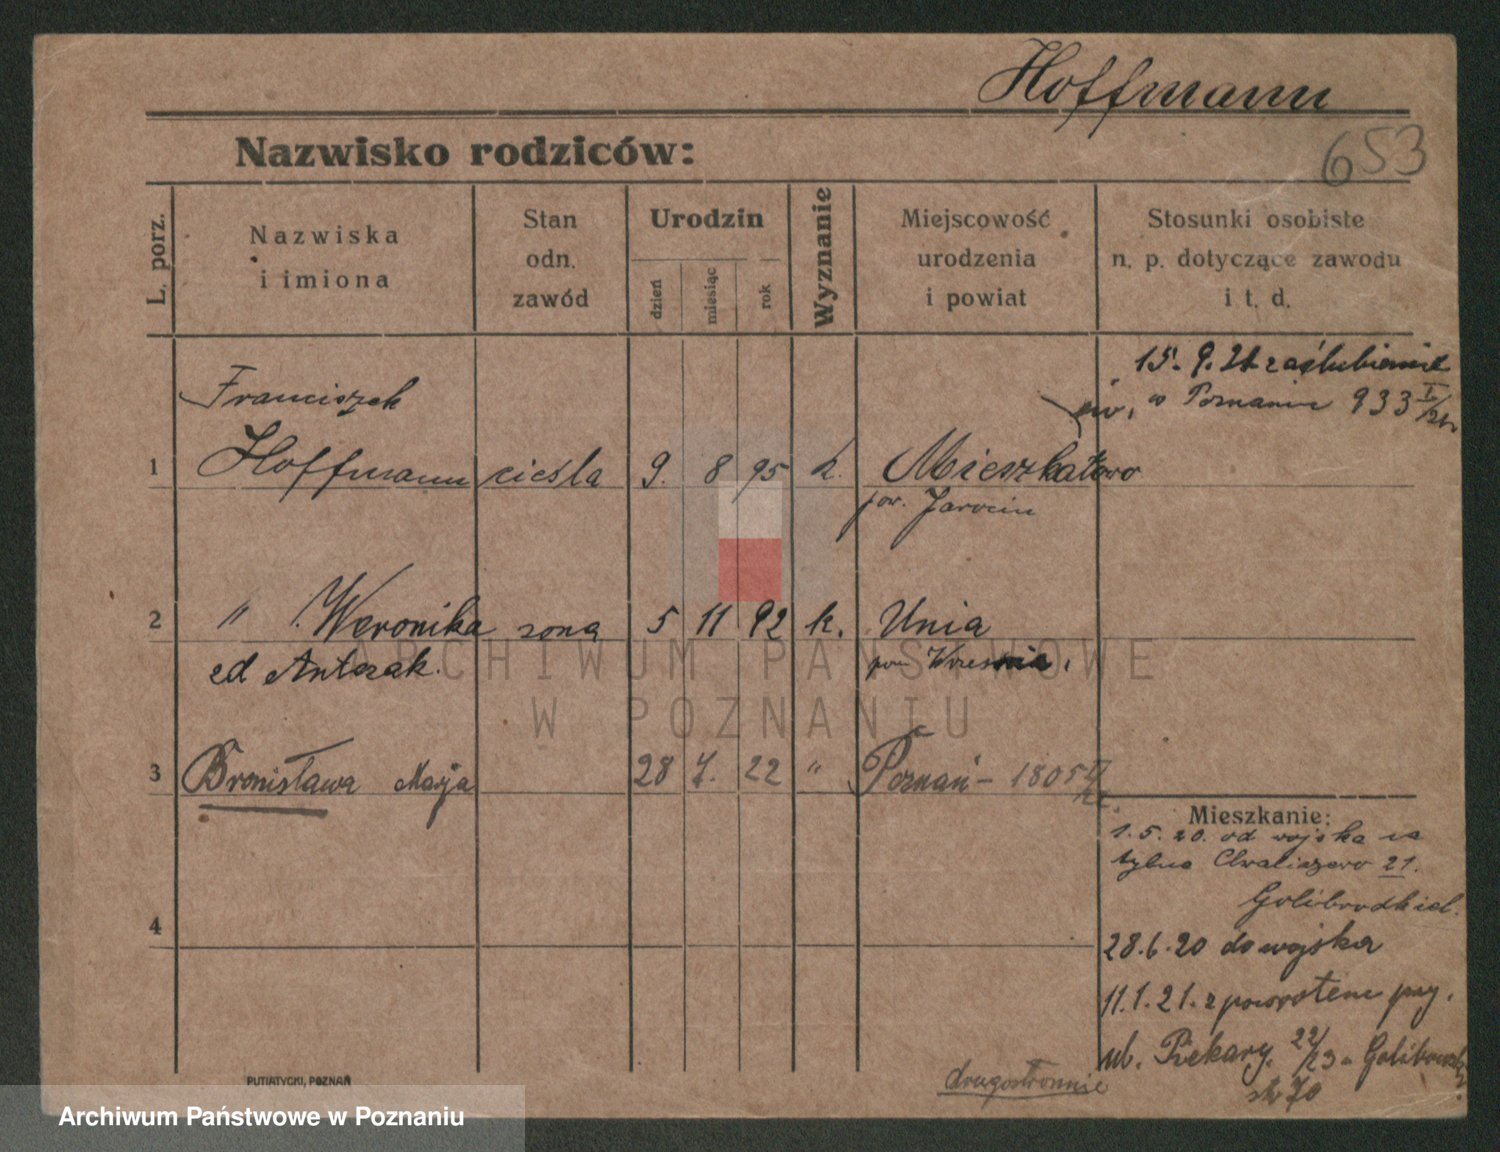 Hoffmann
653
Nazwisko rodziców:
L. porz.
Nazwiska
i imiona
Stan
odn.
zawód
Urodzin
dzień
miesiąc
rok
Wyznanie
Miejscowość
urodzenia
i powiat
Stosunki osobiste
n. p. dotyczące zawodu
i t. d.
15. 9. 21 zaślubienie
w Poznaniu 933 I/21
Franciszek
1 Hoffmann cieśla 9. 8 95 k. Mieszkatowo
pow. Jarocin
2 " Weronika żona 5 11 92 k. Unia
zd Antczak. pow Wrześnie,
3 Bronisława Marja 28 7. 22 " Poznań - 1805
4
Mieszkanie:
1. 5. 20. od wojska na
tylne Chwaliszewo 21.
28. 6. 20 do wojska
11. 1. 21. z powrotem
ul. Piekary. 22/23
drugostronnie
PUTIATYCKI, POZNAŃ
ARCHIWUM PAŃSTWOWE
W POZNANIU
Archiwum Państwowe w Poznaniu